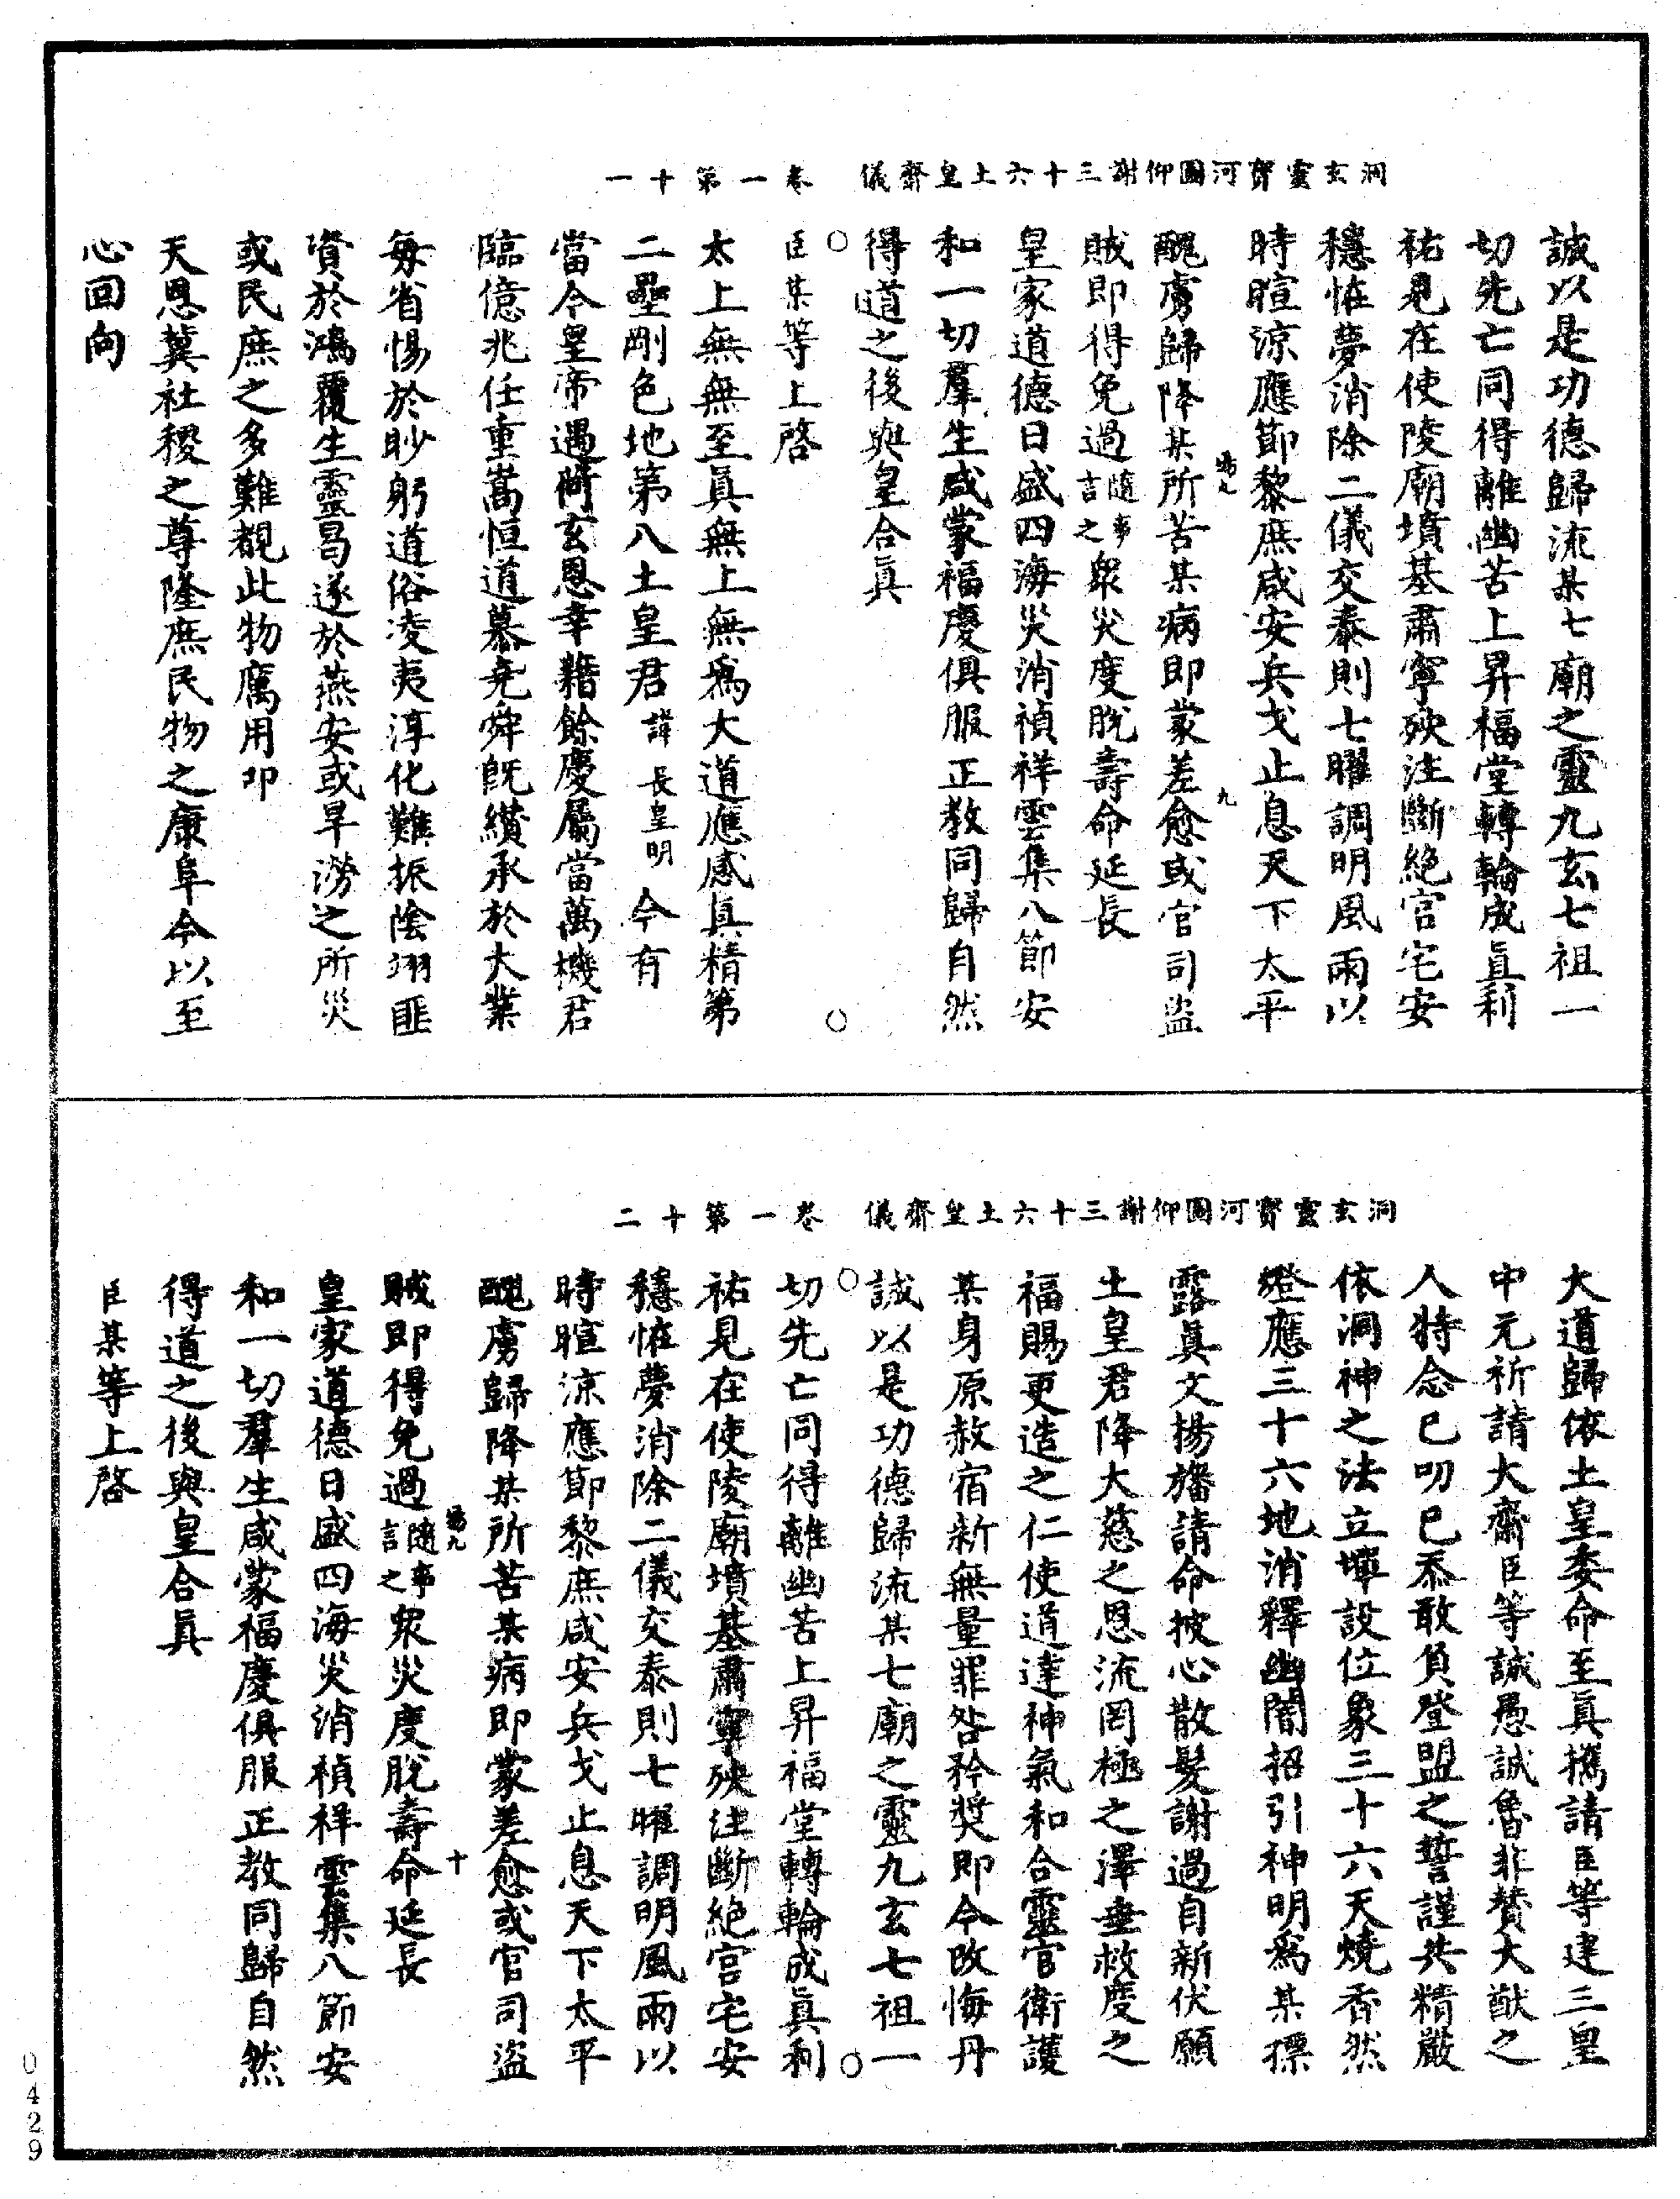 洞玄靈寶河圖仰謝三十六土皇齋儀　卷一第十一
誠以是功德歸流某七廟之靈九玄七祖一
切先亡同得離幽苦上昇福堂轉輪成眞利
祐見在使陵廟墳基肅寧殃注斷絕宫宅安
穩怪夢消除二儀交泰則七曜調明風雨以
時暄涼應節黎庶咸安兵戈止息天下太平
九
醜虜歸降某所苦某病即蒙差愈或官司盜
賊即得免過隨事言之衆災度脫壽命延長
皇家道德日盛四海災消禎祥雲集八節安
和一切羣生咸蒙福慶俱服正教同歸自然
得道之後與皇合眞
○　○
臣某等上啓
太上無無至眞無上無爲大道應感眞精第
二壘剛色地第八土皇君諱長皇明今有
當今皇帝遇荷玄恩幸藉餘慶屬當萬機君
臨億兆任重嵩恒道慕堯舜旣纘承於大業
每省惕於眇躬道俗凌夷淳化難振陰翊匪
資於鴻覆生靈曷遂於燕安或旱澇之所災
或民庶之多難覩此物應用叩
天恩冀社稷之尊隆庶民物之康阜今以至
心回向
洞玄靈寶河圖仰謝三十六土皇齋儀　卷一第十二
大道歸依土皇委命至眞攜請臣等建三皇
中元祈請大齋臣等誠愚誠魯非贊大猷之
人特念已叨已忝敢負登盟之誓謹共精嚴
依洞神之法立墠設位象三十六天燒香然
燈應三十六地消釋幽闇招引神明爲某摽
露眞文揚旛請命披心散髮謝過自新伏願
土皇君降大慈之恩流罔極之澤垂救度之
福賜更造之仁使道達神氣和合靈官衛護
某身原赦宿新無量罪咎矜奬即今改悔丹
誠以是功德歸流某七廟之靈九玄七祖一
○　○
切先亡同得離幽苦上昇福堂轉輪成眞利
祐見在使陵廟墳基肅寧殃注斷絕宫宅安
穩怪夢消除二儀交泰則七曜調明風雨以
時暄涼應節黎庶咸安兵戈止息天下太平
醜虜歸降某所苦某病即蒙差愈或官司盜
十
賊即得免過隨事言之衆災度脫壽命延長
皇家道德日盛四海災消禎祥雲集八節安
和一切羣生咸蒙福慶俱服正教同歸自然
得道之後與皇合眞
臣某等上啓
0429